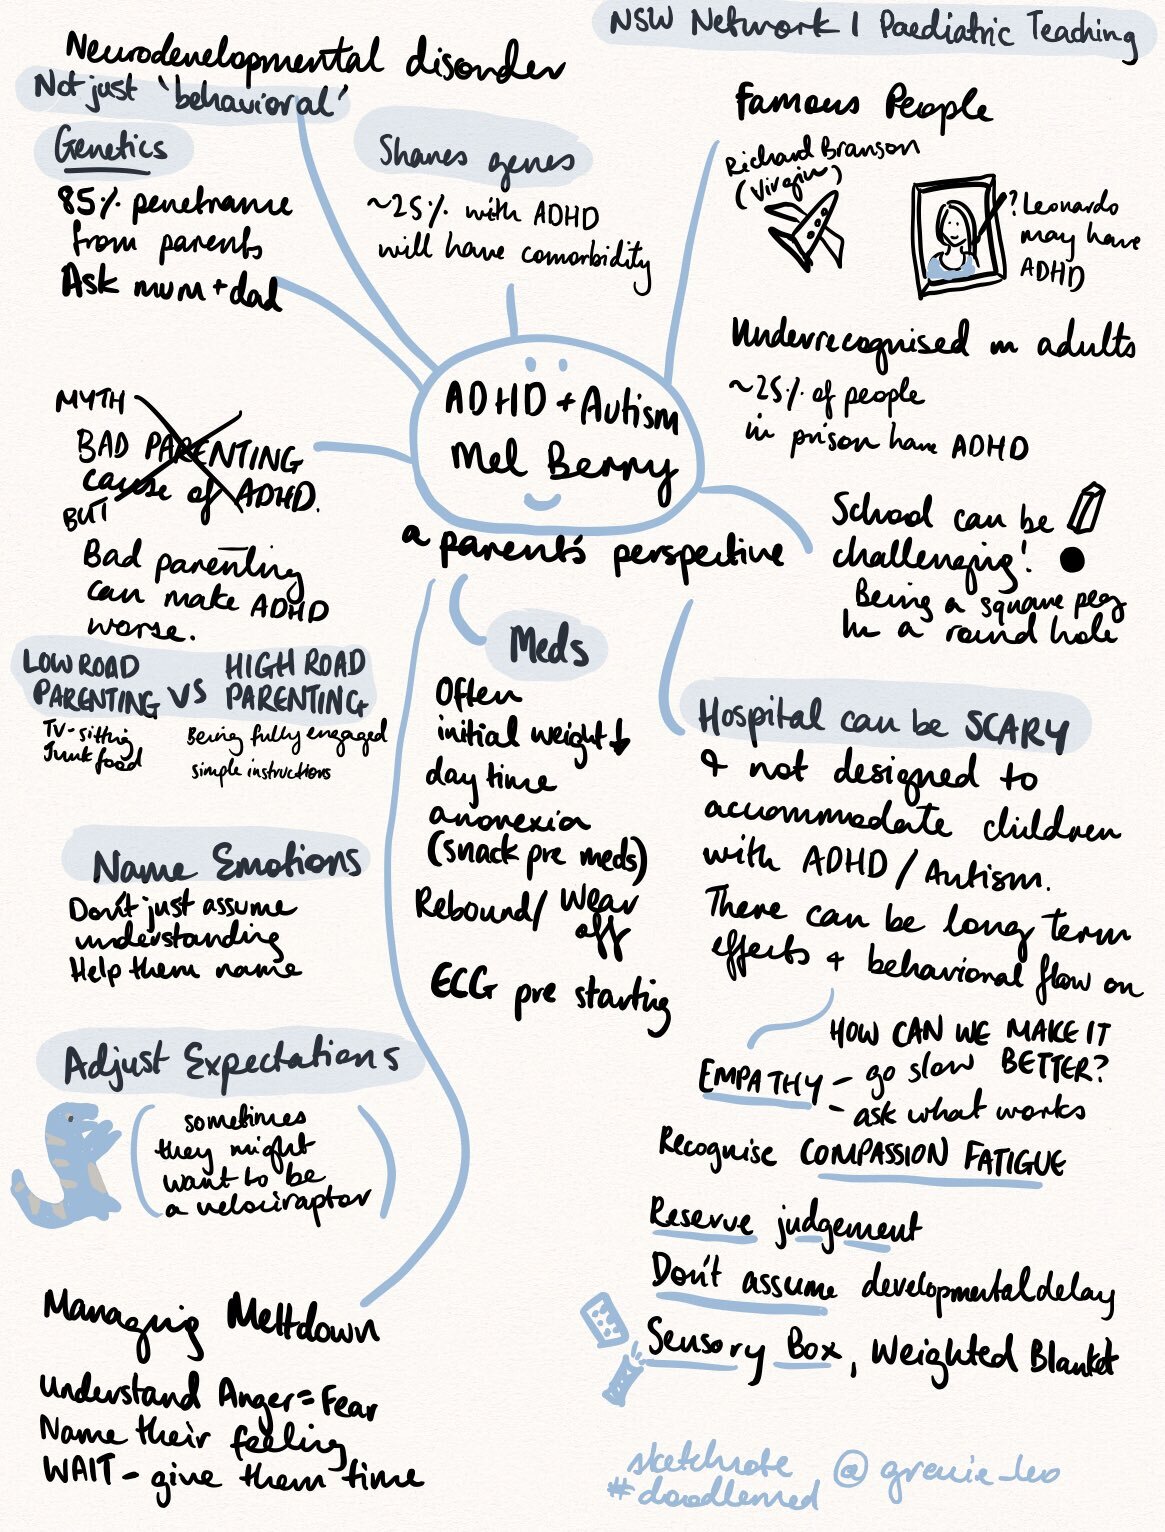 NSW Network 1 Paediatric Teaching
Neurodevelopmental disorder
Not just 'behavioral'
Genetics
85% penetrance
from parents
Ask mum + dad
Shares genes
~25% with ADHD
will have comorbidity
Famous People
Richard Branson
(Virgin)
? Leonardo
may have
ADHD
Underrecognised in adults
~25% of people
in prison have ADHD
ADHD + Autism
Mel Berry
a parent's perspective
MYTH
BAD PARENTING
cause of ADHD.
BUT
Bad parenting
can make ADHD
worse.
LOW ROAD
PARENTING
VS
HIGH ROAD
PARENTING
TV-sitting
Junk food
Being fully engaged
simple instructions
School can be
challenging!
Being a square peg
in a round hole
Meds
Often
initial weight ↓
day time
anorexia
(snack pre meds)
Rebound/ Wear
off
ECG pre starting
Hospital can be SCARY
& not designed to
accommodate children
with ADHD / Autism.
There can be long term
effects + behavioral flow on
HOW CAN WE MAKE IT
BETTER?
EMPATHY - go slow
- ask what works
Recognise COMPASSION FATIGUE
Reserve judgement
Don't assume developmental delay
Sensory Box, Weighted Blanket
Name Emotions
Don't just assume
understanding
Help them name
Adjust Expectations
(sometimes
they might
want to be
a velociraptor)
Managing Meltdown
Understand Anger = Fear
Name their feeling
WAIT - give them time
sketchnote
#doodlemed
@gracie_leo